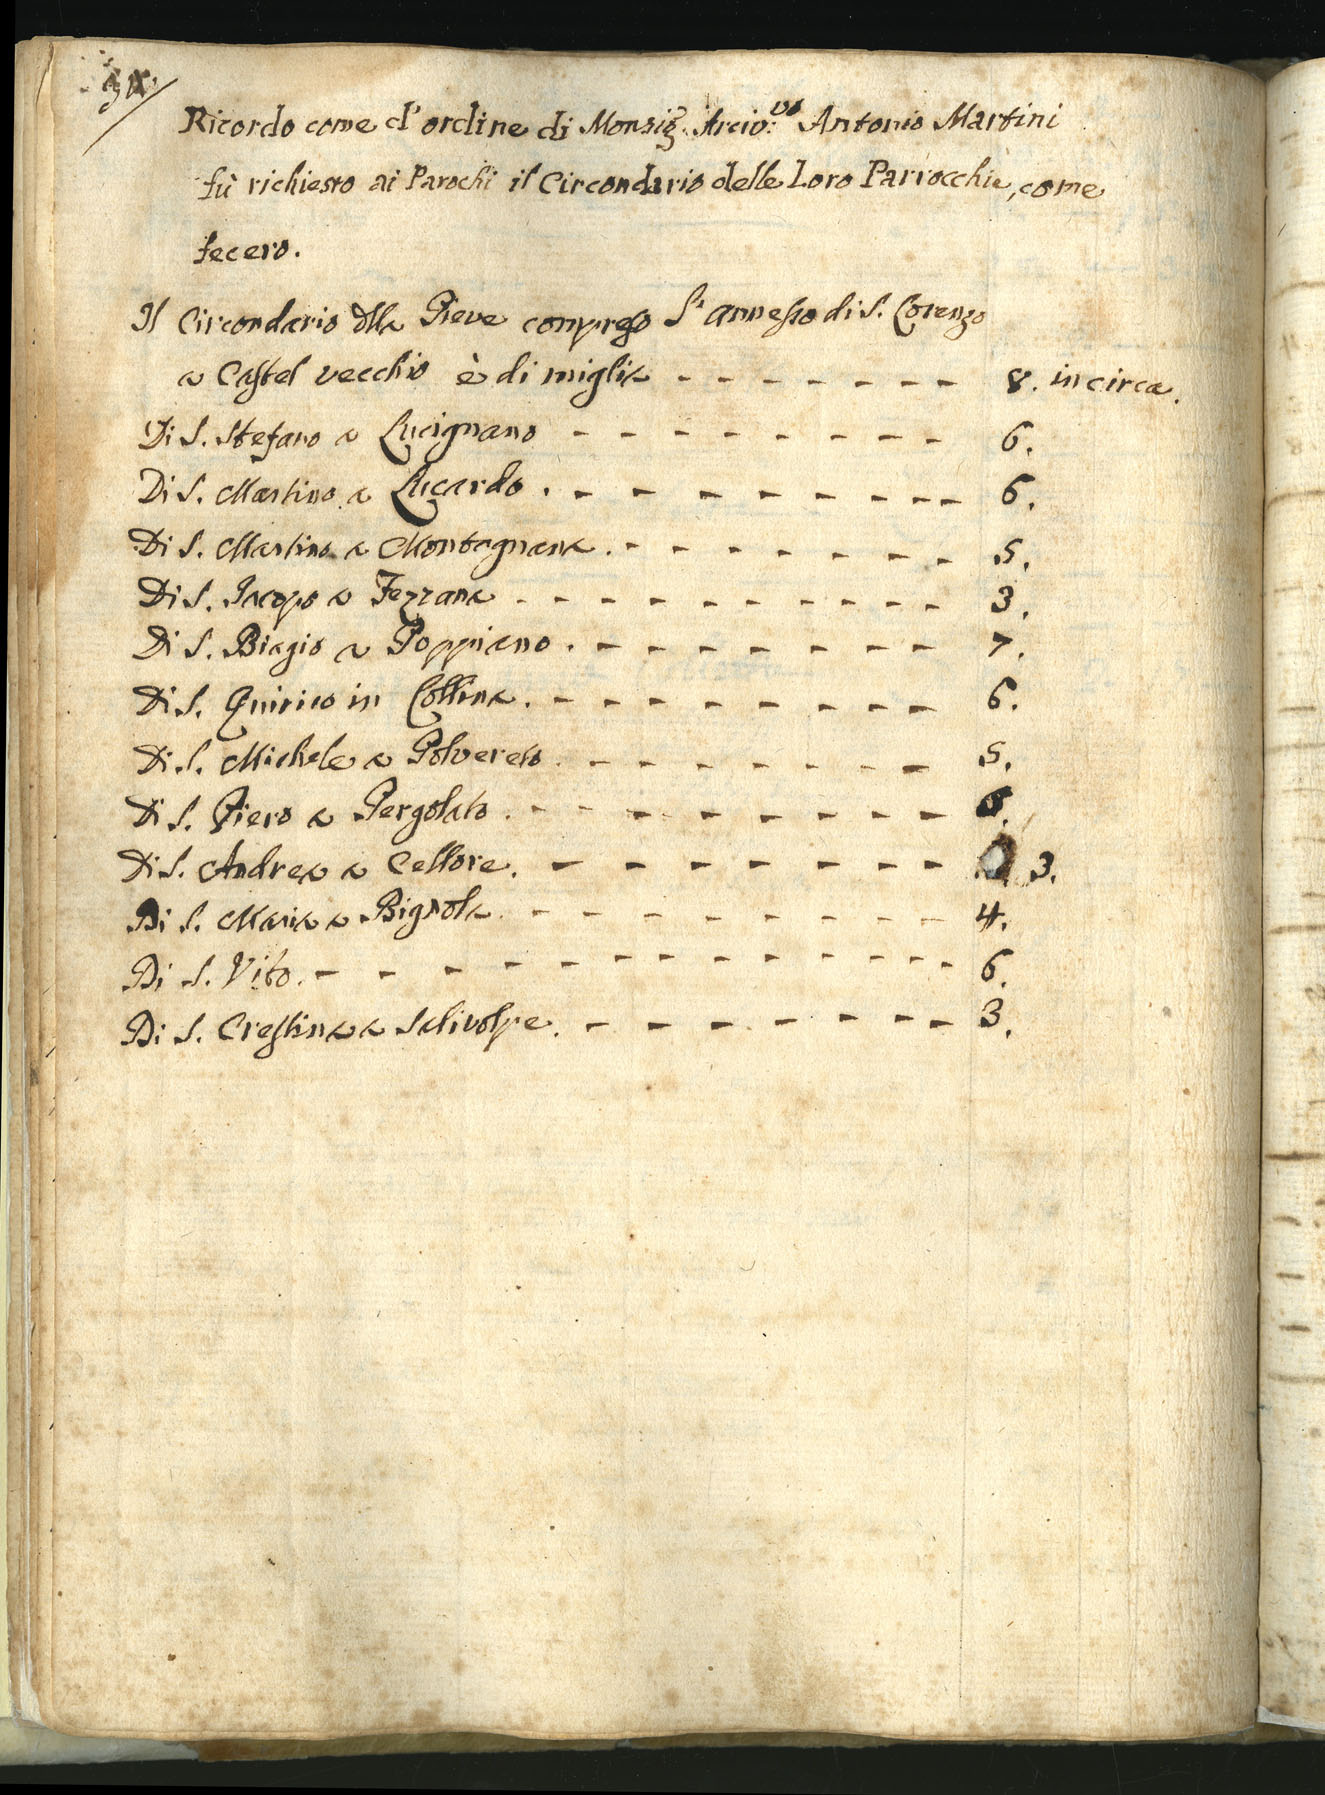 Ricordo come d'ordine di Monsig.r Arciv:vo Antonio Martini
fù richiesto ai Parochi il Circondario delle Loro Parrocchie, come
fecero.
Il Circondario dlla Pieve compreso l'annesso di S. Lorenzo
a Castel vecchio è di miglia - - - - - - - 8. in circa.
Di S. Stefano a Lucignano - - - - - - - - 6.
Di S. Martino a Lucardo . - - - - - - - - 6.
Di S. Martino a Montagnana . - - - - - - - - 5.
Di S. Iacopo a Fezzana - - - - - - - - - - 3.
Di S. Biagio a Poppiano . - - - - - - - - 7.
Di S. Quirico in Collina . - - - - - - - - 6.
Di S. Michele a Polvereto - - - - - - - - 5.
Di S. Piero a Pergolato . - - - - - - - - -
Di S. Andrea a Cellore . - - - - - - - - 3.
Di S. Maria a Bignola - - - - - - - - - 4.
Di S. Vito . - - - - - - - - - - - - - 6.
Di S. Crestina a Salivolpe . - - - - - - - - 3.